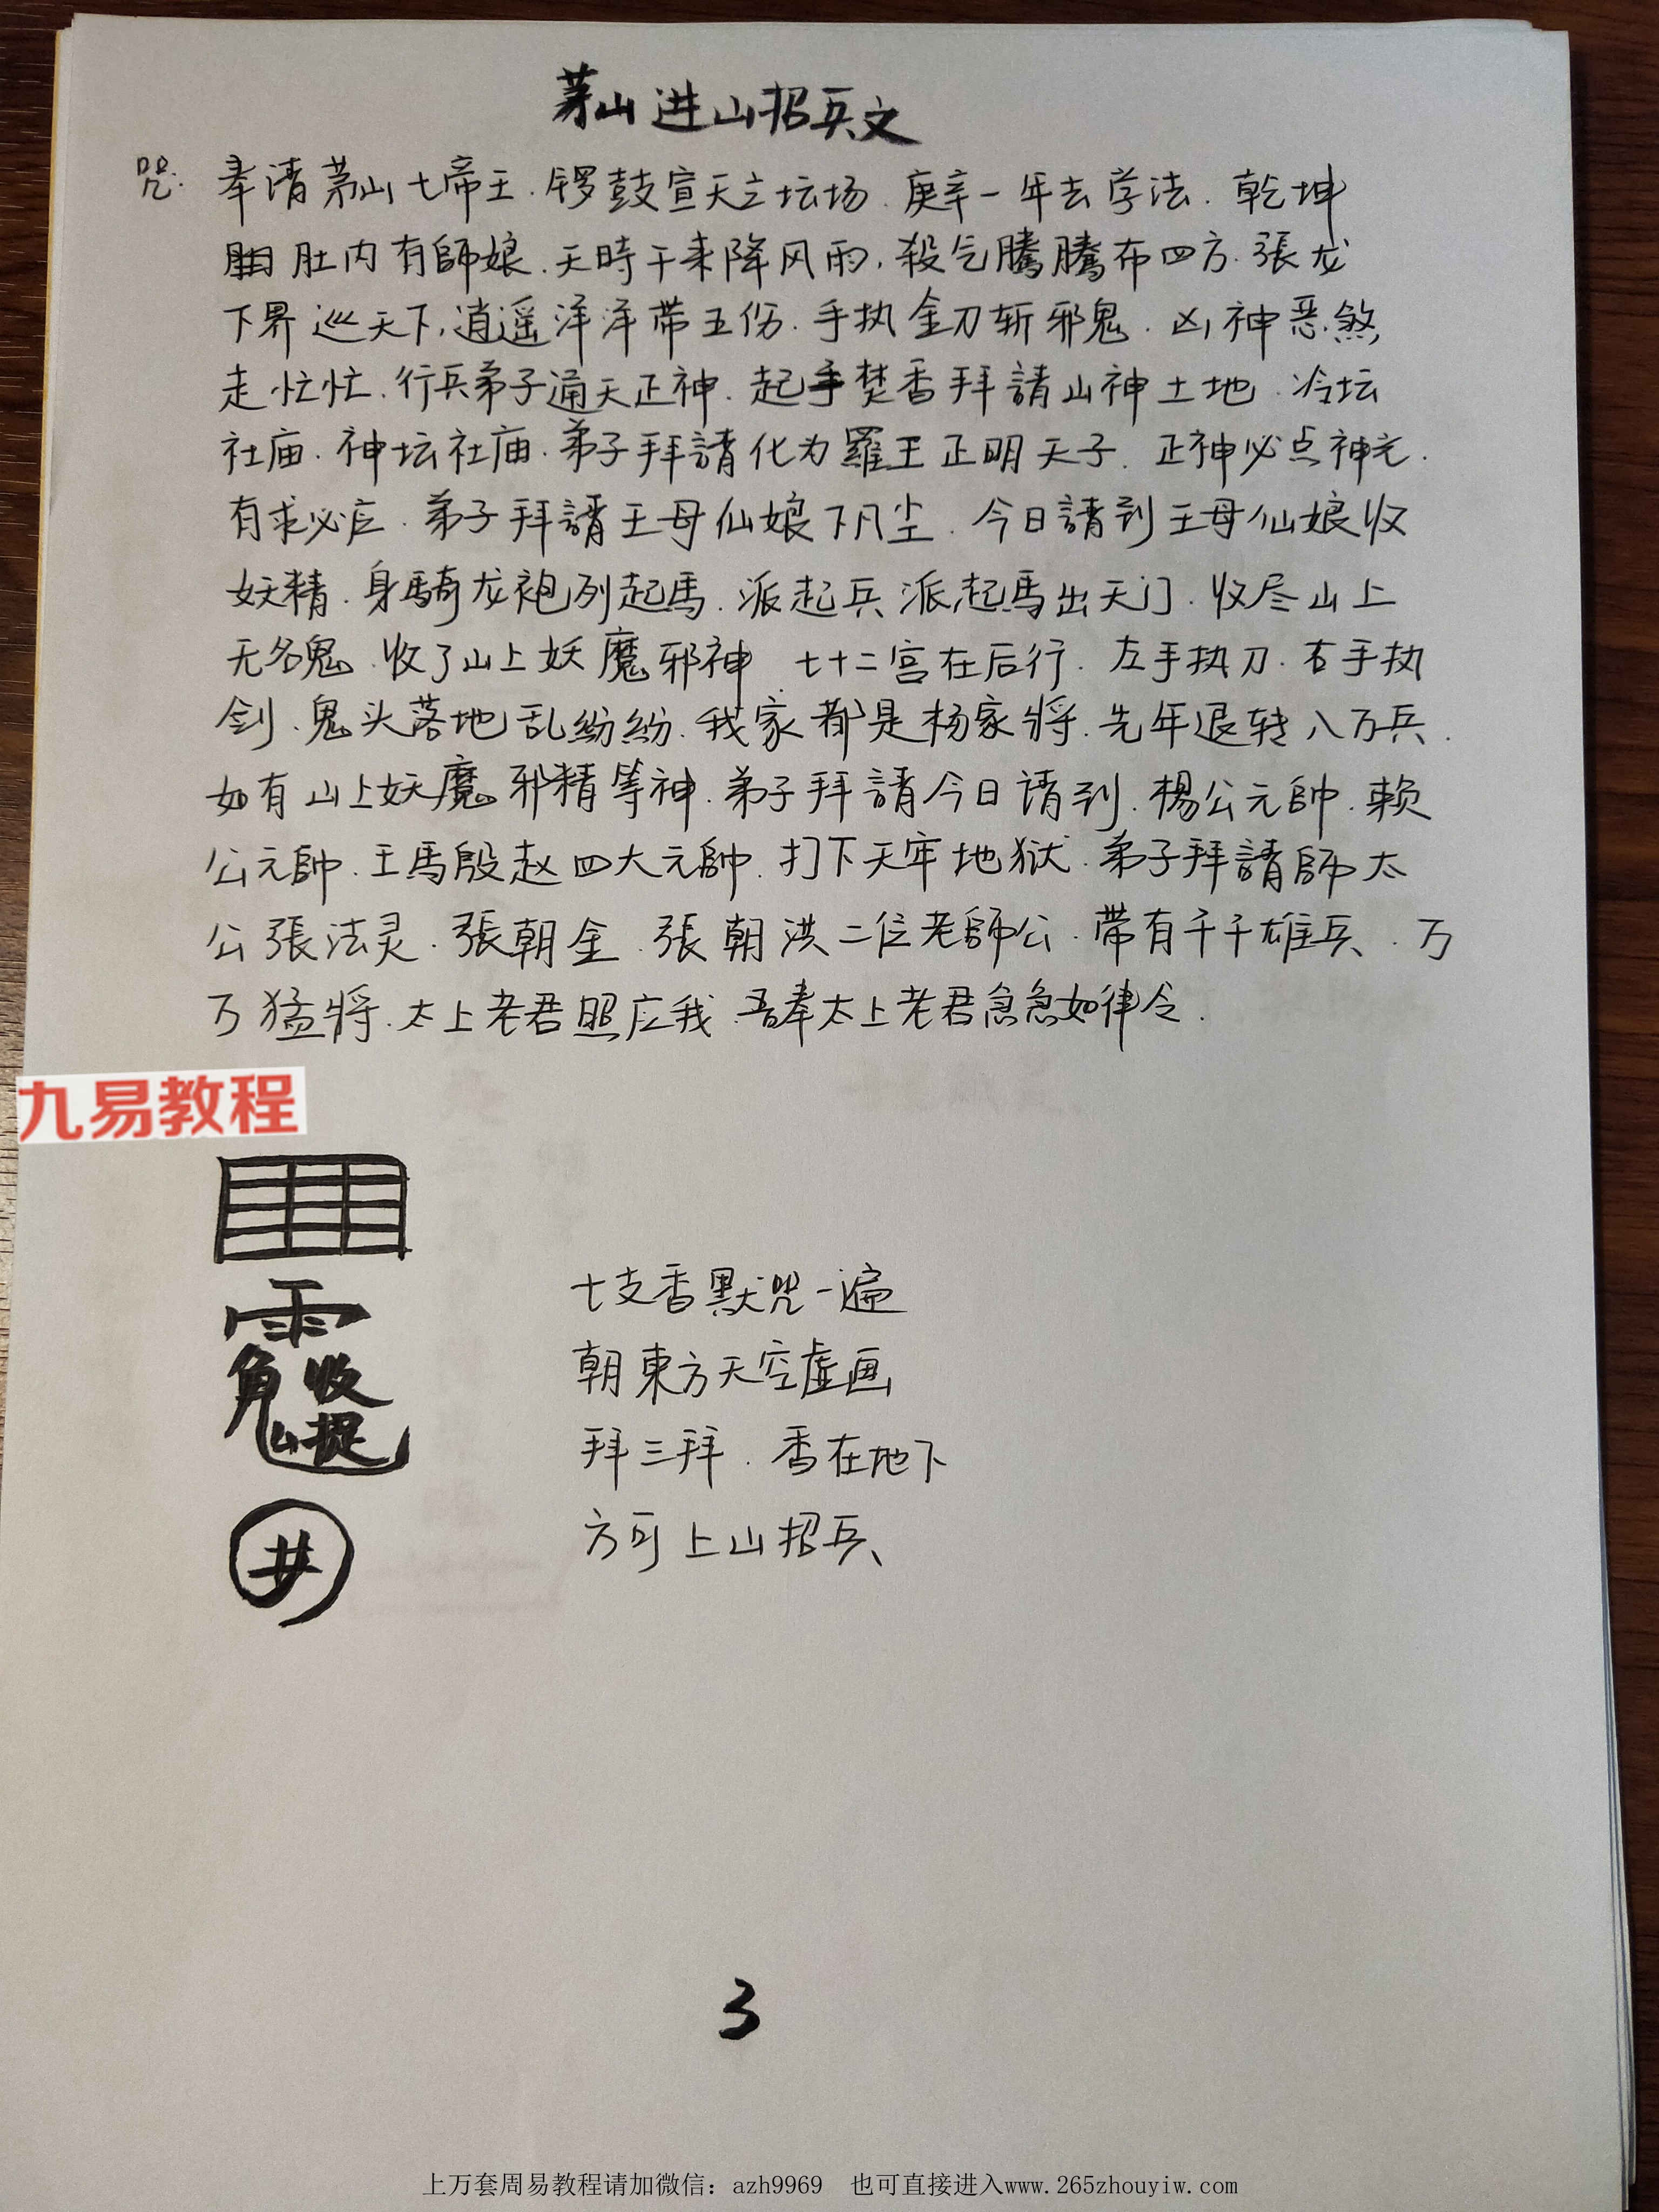 茅山进山招兵文
咒: 奉请茅山七帝王.锣鼓宣天立坛场.庚辛一年去学法.乾坤
肚内有師娘.天時干来降风雨,殺气騰騰布四方.張龙
下界巡天下,逍遥洋洋带五伤.手执金刀斩邪鬼.凶神恶煞
走忙忙.行兵弟子通天正神.起手焚香拜請山神土地.冷坛
社庙.神坛社庙.弟子拜請化为羅王正明天子.正神必点神光.
有求必应.弟子拜請王母仙娘下凡尘.今日請到王母仙娘收
妖精.身騎龙袍列起馬.派起兵派起馬出天门.收尽山上
无名鬼.收了山上妖魔邪神.七十二宫在后行.左手执刀.右手执
剑.鬼头落地乱纷纷.我家都是杨家將.先年退转八万兵.
如有山上妖魔邪精等神.弟子拜請今日请到.楊公元帥.赖
公元帥.王馬殷赵四大元帥.打下天牢地狱.弟子拜請師太
公張法灵.張朝金.張朝洪二位老師公.带有千千雄兵.万
万猛將.太上老君照应我.吾奉太上老君急急如律令.
九易教程
雨
鬼收
捉
井
七支香默咒一遍
朝東方天空虚画
拜三拜.香在地下
方可上山招兵、
3
上万套周易教程请加微信：azh9969 也可直接进入www.265zhouyiw.com